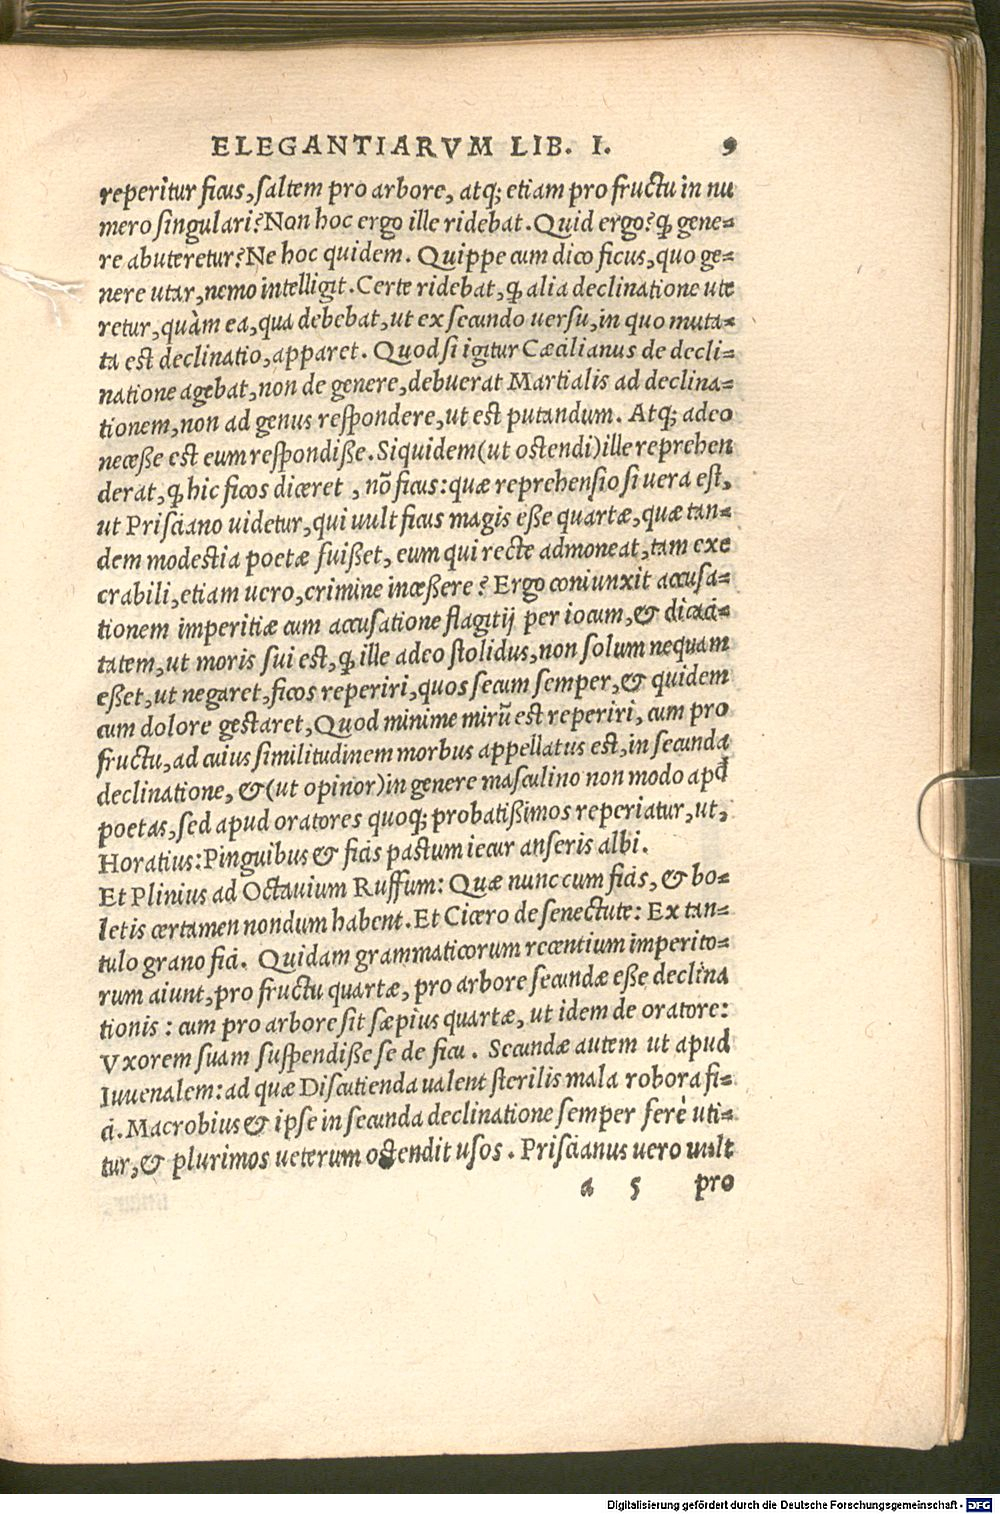 ELEGANTIARVM LIB. I. 9
reperitur ficus, saltem pro arbore, atq; etiam pro fructu in nu
mero singulari? Non hoc ergo ille ridebat. Quid ergo? ꝙ gene=
re abuteretur? Ne hoc quidem. Quippe cum dico ficus, quo ge=
nere utar, nemo intelligit. Certe ridebat, ꝙ alia declinatione ute
retur, quàm ea, qua debebat, ut ex secundo uersu, in quo muta=
ta est declinatio, apparet. Quod si igitur Cæcilianus de decli=
natione agebat, non de genere, debuerat Martialis ad declina=
tionem, non ad genus respondere, ut est putandum. Atq; adeo
necesse est eum respondisse. Siquidem (ut ostendi) ille reprehen
derat, ꝙ hic ficos diceret, nō ficus: quæ reprehensio si uera est,
ut Prisciano uidetur, qui uult ficus magis esse quartæ, quæ tan=
dem modestia poetæ fuisset, eum qui recte admoneat, tam exe
crabili, etiam uero, crimine incessere? Ergo coniunxit accusa=
tionem imperitiæ cum accusatione flagitij per iocum, & dicaci=
tatem, ut moris sui est, ꝙ ille adeo stolidus, non solum nequam
esset, ut negaret, ficos reperiri, quos secum semper, & quidem
cum dolore gestaret, Quod minime mirū est reperiri, cum pro
fructu, ad cuius similitudinem morbus appellatus est, in secunda
declinatione, & (ut opinor) in genere masculino non modo apđ
poetas, sed apud oratores quoq; probatissimos reperiatur, ut,
Horatius: Pinguibus & ficis pastum iecur anseris albi.
Et Plinius ad Octauium Ruffum: Quæ nunc cum ficis, & bo=
letis certamen nondum habent. Et Cicero de senectute: Ex tan=
tulo grano fici. Quidam grammaticorum recentium imperito=
rum aiunt, pro fructu quartæ, pro arbore secundæ esse declina
tionis: cum pro arbore sit sæpius quartæ, ut idem de oratore:
Vxorem suam suspendisse se de ficu. Secundæ autem ut apud
Iuuenalem: ad quæ Discutienda ualent sterilis mala robora fi=
ci. Macrobius & ipse in secunda declinatione semper ferè uti=
tur, & plurimos ueterum ostendit usos. Priscianus uero uult
a 5 pro
Digitalisierung gefördert durch die Deutsche Forschungsgemeinschaft - DFG